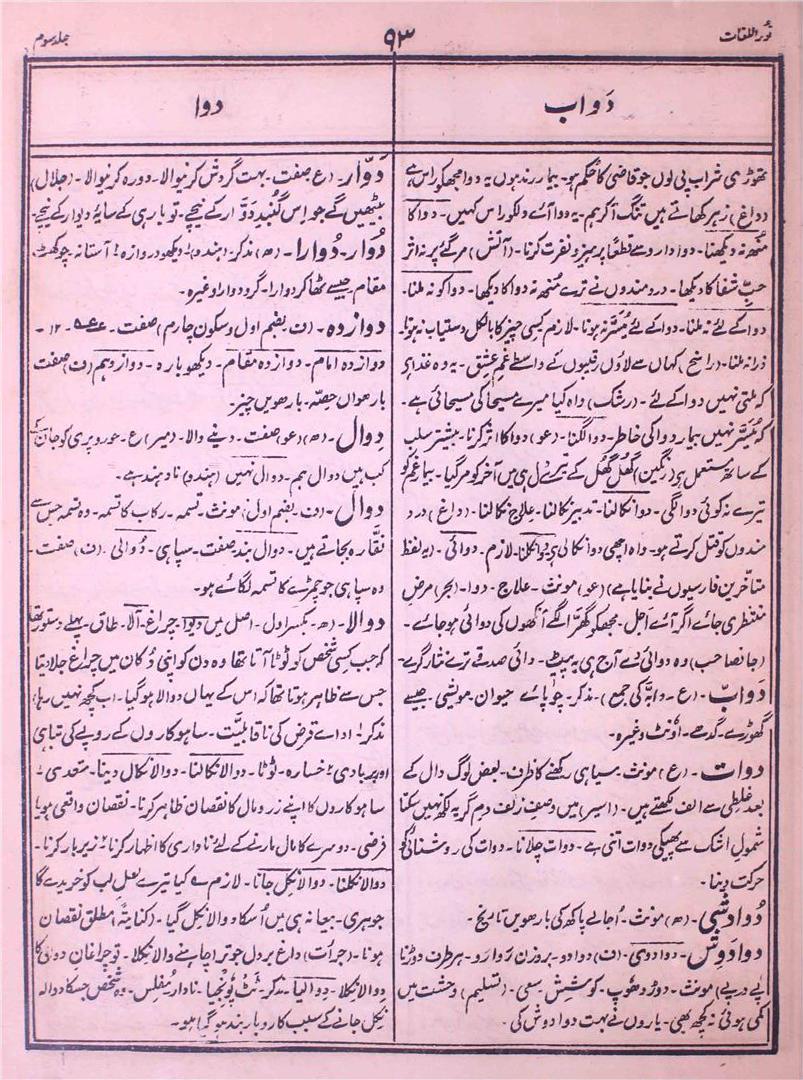 نُور اللغات
۹۳
جلد سوم
دَواب
دوا
تھوڑی شراب پی لوں جو قاضی کا حکم ہو۔ بیمار رند ہوں یہ دوا مجھکو راس ہے
(داغ) زہر کھاتے ہیں تنگ آکر ہم۔ یہ دوا آئے دلکو راس کہیں۔ دوا کا
مُنھ نہ دیکھنا۔ دوا دارو سے قطعاً پرہیز و نفرت کرنا۔ (آتش) مرگئے پر نہ اثر
حبِّ شفا کا دیکھا۔ دردمندوں نے ترے مُنھ نہ دوا کا دیکھا۔ دوا کو نہ ملنا۔
دوا کے لئے نہ ملنا۔ دوا کے لئے مُیسّر نہ ہونا۔ لازم کسی چیز کا بالکل دستیاب نہ ہونا۔
ذرا نہ ملنا۔ (راضح) کہاں سے لاؤں رقیبوں کے واسطے غمِ عشق۔ یہ وہ غذا ہے
کہ ملتی نہیں دوا کے لئے۔ (رشک) واہ کیا میرے مسیحا کی مسیحائی ہے۔
کہ مُیسّر نہیں بیمار دوا کی خاطر۔ دوا لگنا۔ (عو) دوا کا اثر کرنا۔ بیشتر سلب
کے ساتھ مستعمل ہے (رنگین) گھُل گھُل کے تیرے دل ہی میں آخر کو مر گیا۔ بیمار غم کو
تیرے نہ کوئی دوا لگی۔ دوا نکالنا۔ تدبیر نکالنا۔ علاج نکالنا۔ (داغ) درد
مندوں کو قتل کرتے ہو۔ واہ اچھی دوا نکالی ہے دوا نکلنا۔ لازم۔ دوائی۔ (یہ لفظ
متأخرین فارسیوں نے بنایا ہے) (عو) مونث۔ علاج۔ دوا۔ (بحر) مرضِ
منتظری جائے اگر آئے اجل۔ مجھکو گھر آکے آنکھوں کی دوائی ہو جائے۔
(جانصاحب) وہ دوائی دے آج ہی یہ پیٹ۔ دائی صدقے ترے نثار گرے۔
دَوابّ۔ (ع۔ دابّہ کی جمع)۔ مذکر۔ چوپائے حیوان۔ مویشی۔ جیسے
گھوڑے۔ گدھے۔ اُونٹ وغیرہ۔
دوات۔ (ع) مونث۔ سیاہی رکھنے کا ظرف۔ بعض لوگ دال کے
بعد غلطی سے الف لکھتے ہیں۔ (اسیر) میں وصفِ زلف دمِ گریہ لکھ نہیں سکتا
شمولِ اشک سے پھیکی دوات اتنی ہے۔ دوات چلانا۔ دوات کی روشنائی کو
حرکت دینا۔
دُوادشی۔ (ھ) مونث۔ اُجالے پاکھ کی بارھویں تاریخ۔
دوا دَوِش۔ دوا دوی۔ (ن) دوا دو۔ بروزن رَوا رو۔ ہر طرف دوڑنا
پے در پے) مونث۔ دوڑ دھوپ۔ کوشش۔ سعی۔ (تسلیم) وحشت میں
کمی ہوئی نہ کچھ بھی۔ یاروں نے بہت دوا دوش کی۔
دَوّار۔ (ع) صفت۔ بہت گردش کرنیوالا۔ دورہ کرنیوالا۔ (جلال)
بیٹھیں گے جو اِس گُنبدِ دَوّار کے نیچے۔ تو بار ہی کے سایۂ دیوار کے نیچے۔
دُوار۔ دُوارا۔ (ھ) مذکر۔ (ہندو) ۱ دیکھو دروازہ ۲ آستانہ۔ چوکھٹ۔
مقام جیسے ٹھاکر دوارا۔ گرو دوارا وغیرہ۔
دوازدہ۔ (ن بفتح اول و سکون چارم) صفت۔ ۱۲۔
دوازدہ امام۔ دوازدہ مقام۔ دیکھو بارہ۔ دوازدہم (ن) صفت
بارھواں حصّہ۔ بارھویں چیز
دِوال۔ (ھ) (عو) صفت۔ دینے والا۔ (میر) ع۔ حور و پری کو جان کے
کب ہیں دوال ہم۔ دوالی نہیں (ہندو) نادہند ہے۔
دوال۔ (ن۔ بفتح اول) مونث۔ تسمہ۔ رکاب کا تسمہ۔ وہ تسمہ جس سے
نقّارہ بجاتے ہیں۔ دوال بند صفت۔ سپاہی۔ دُوالی۔ (ن) صفت۔
وہ سپاہی جو چمڑے کا تسمہ لگائے ہو۔
دوالا۔ (ھ۔ بکسر اول۔ اصل میں دیوا۔ چراغ۔ آلا۔ طاق۔ پہلے دستور تھا
کہ جب کسی شخص کو ٹوٹا آتا تھا وہ دن کو اپنی دُکان میں چراغ جلا دیتا
جس سے ظاہر ہوتا تھا کہ اس کے یہاں دوالا ہوگیا۔ اب کچھ نہیں رہا)
مذکر ۱ ادائے قرض کی ناقابلیّت۔ ساہوکاروں کے روپے کی تباہی
اور بربادی ۲ خسارہ۔ ٹوٹا۔ دوالا نکالنا۔ دوالا نکال دینا۔ متعدی ۱
ساہوکاروں کا اپنے زر و مال کا نقصان ظاہر کرنا۔ نقصان واقعی ہو یا
فرضی۔ دوسرے کا مال مارنے کے لئے ناداری کا اظہار کرنا ۲ زیربار کرنا۔
دوالا نکلنا۔ دوالا نکل جانا۔ لازم ؎ کیا تیرے لعل لب کو خریدے گا
جوہری۔ بیعانہ ہی میں اُسکا دوالا نکل گیا۔ (کنایۃً) مطلق نقصان
ہونا۔ (جرأت) داغ بر دل جو ترا چاہنے والا نکلا۔ تو چراغاں دوالی کا
دوالا نکلا۔ دِوالیا۔ مذکر۔ ٹٹ پونجیا۔ نادار۔ مفلس۔ وہ شخص جسکا دوالہ
نکل جانے کے سبب کاروبار بند ہوگیا ہو۔